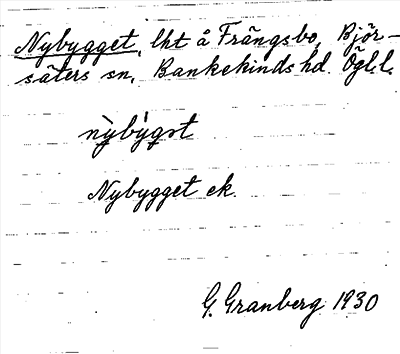 Nybygget, lht å Frängsbo, Björ-
säters sn, Bankekinds hd. Ögl.l.
nỳbỳgət
Nybygget ek.
G. Granberg 1930